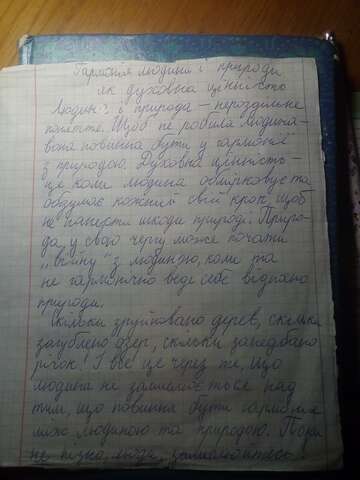 Гармонія людини і природи
як духовна цінність
Людина і природа – нероздільне
поняття. Щоб не робила людина –
вона повинна бути у гармонії
з природою. Духовна цінність –
це коли людина обмірковує та
обдумає кожний свій крок, щоб
не нанести шкоди природі. Приро-
да, у свою чергу, може почати
„війну" з людиною, коли та
не гармонічно веде себе відносно
природи.
Скільки зруйновано дерев, скільки
загублено озер, скільки занедбано
річок! І все це через те, що
людина не замислюється над
тим, що повинна бути гармонія
між людиною та природою. Поки
не пізно, люди, замислюйтесь!